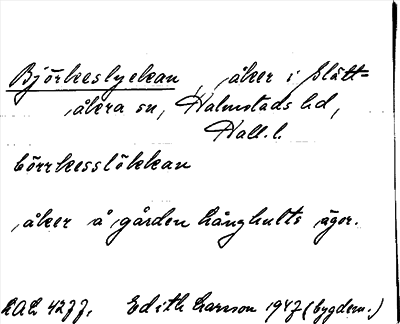 Björkeslyckan, åker i Slätt=
åkra sn, Halmstads hd,
Hall. l.
börrkesslökkan
åker å gården Långhults ägor.
LAL 4277. Edith Larsson 1947 (bygdem.)